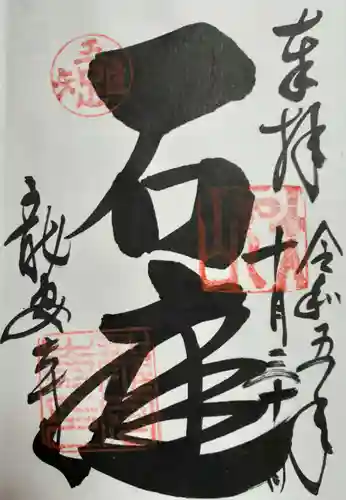 奉拝
令和五年
十月三十一日
石庭
龍安寺